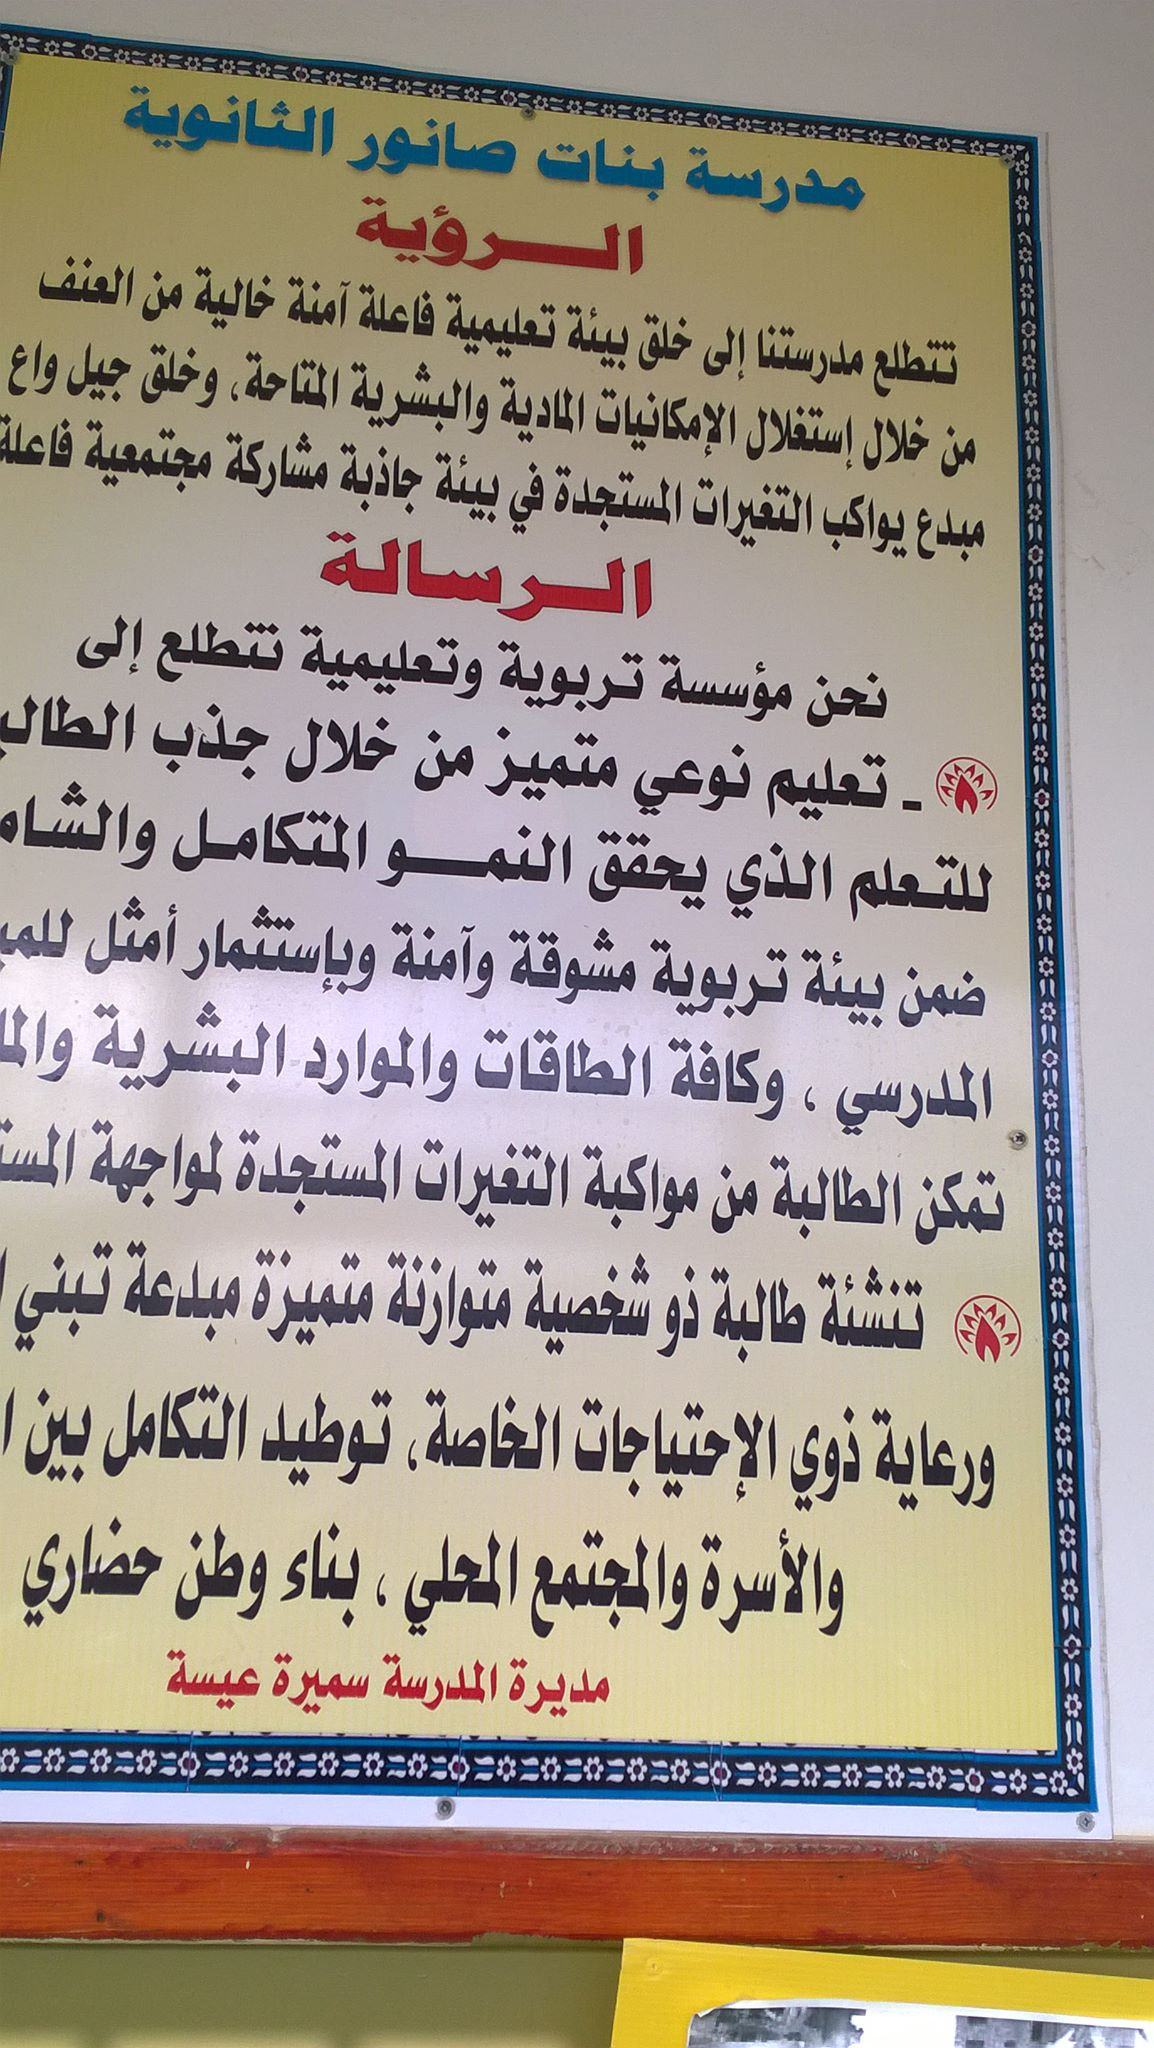 مدرسة بنات صانور الثانوية
الرؤية
تتطلع مدرستنا إلى خلق بيئة تعليمية فاعلة آمنة خالية من العنف
من خلال إستغلال الإمكانيات المادية والبشرية المتاحة، وخلق جيل واع
مبدع يواكب التغيرات المستجدة في بيئة جاذبة مشاركة مجتمعية فاعلة
الرسالة
نحن مؤسسة تربوية وتعليمية تتطلع إلى
ـ تعليم نوعي متميز من خلال جذب
للتعلم الذي يحقق النمو المتكامل
ضمن بيئة تربوية مشوقة وآمنة وبإستثمار أمثل
المدرسي ، وكافة الطاقات والموارد البشرية
تمكن الطالبة من مواكبة التغيرات المستجدة لمواجهة
تنشئة طالبة ذو شخصية متوازنة متميزة مبدعة تبني
ورعاية ذوي الإحتياجات الخاصة، توطيد التكامل بين
والأسرة والمجتمع المحلي ، بناء وطن حضاري
مديرة المدرسة سميرة عيسة